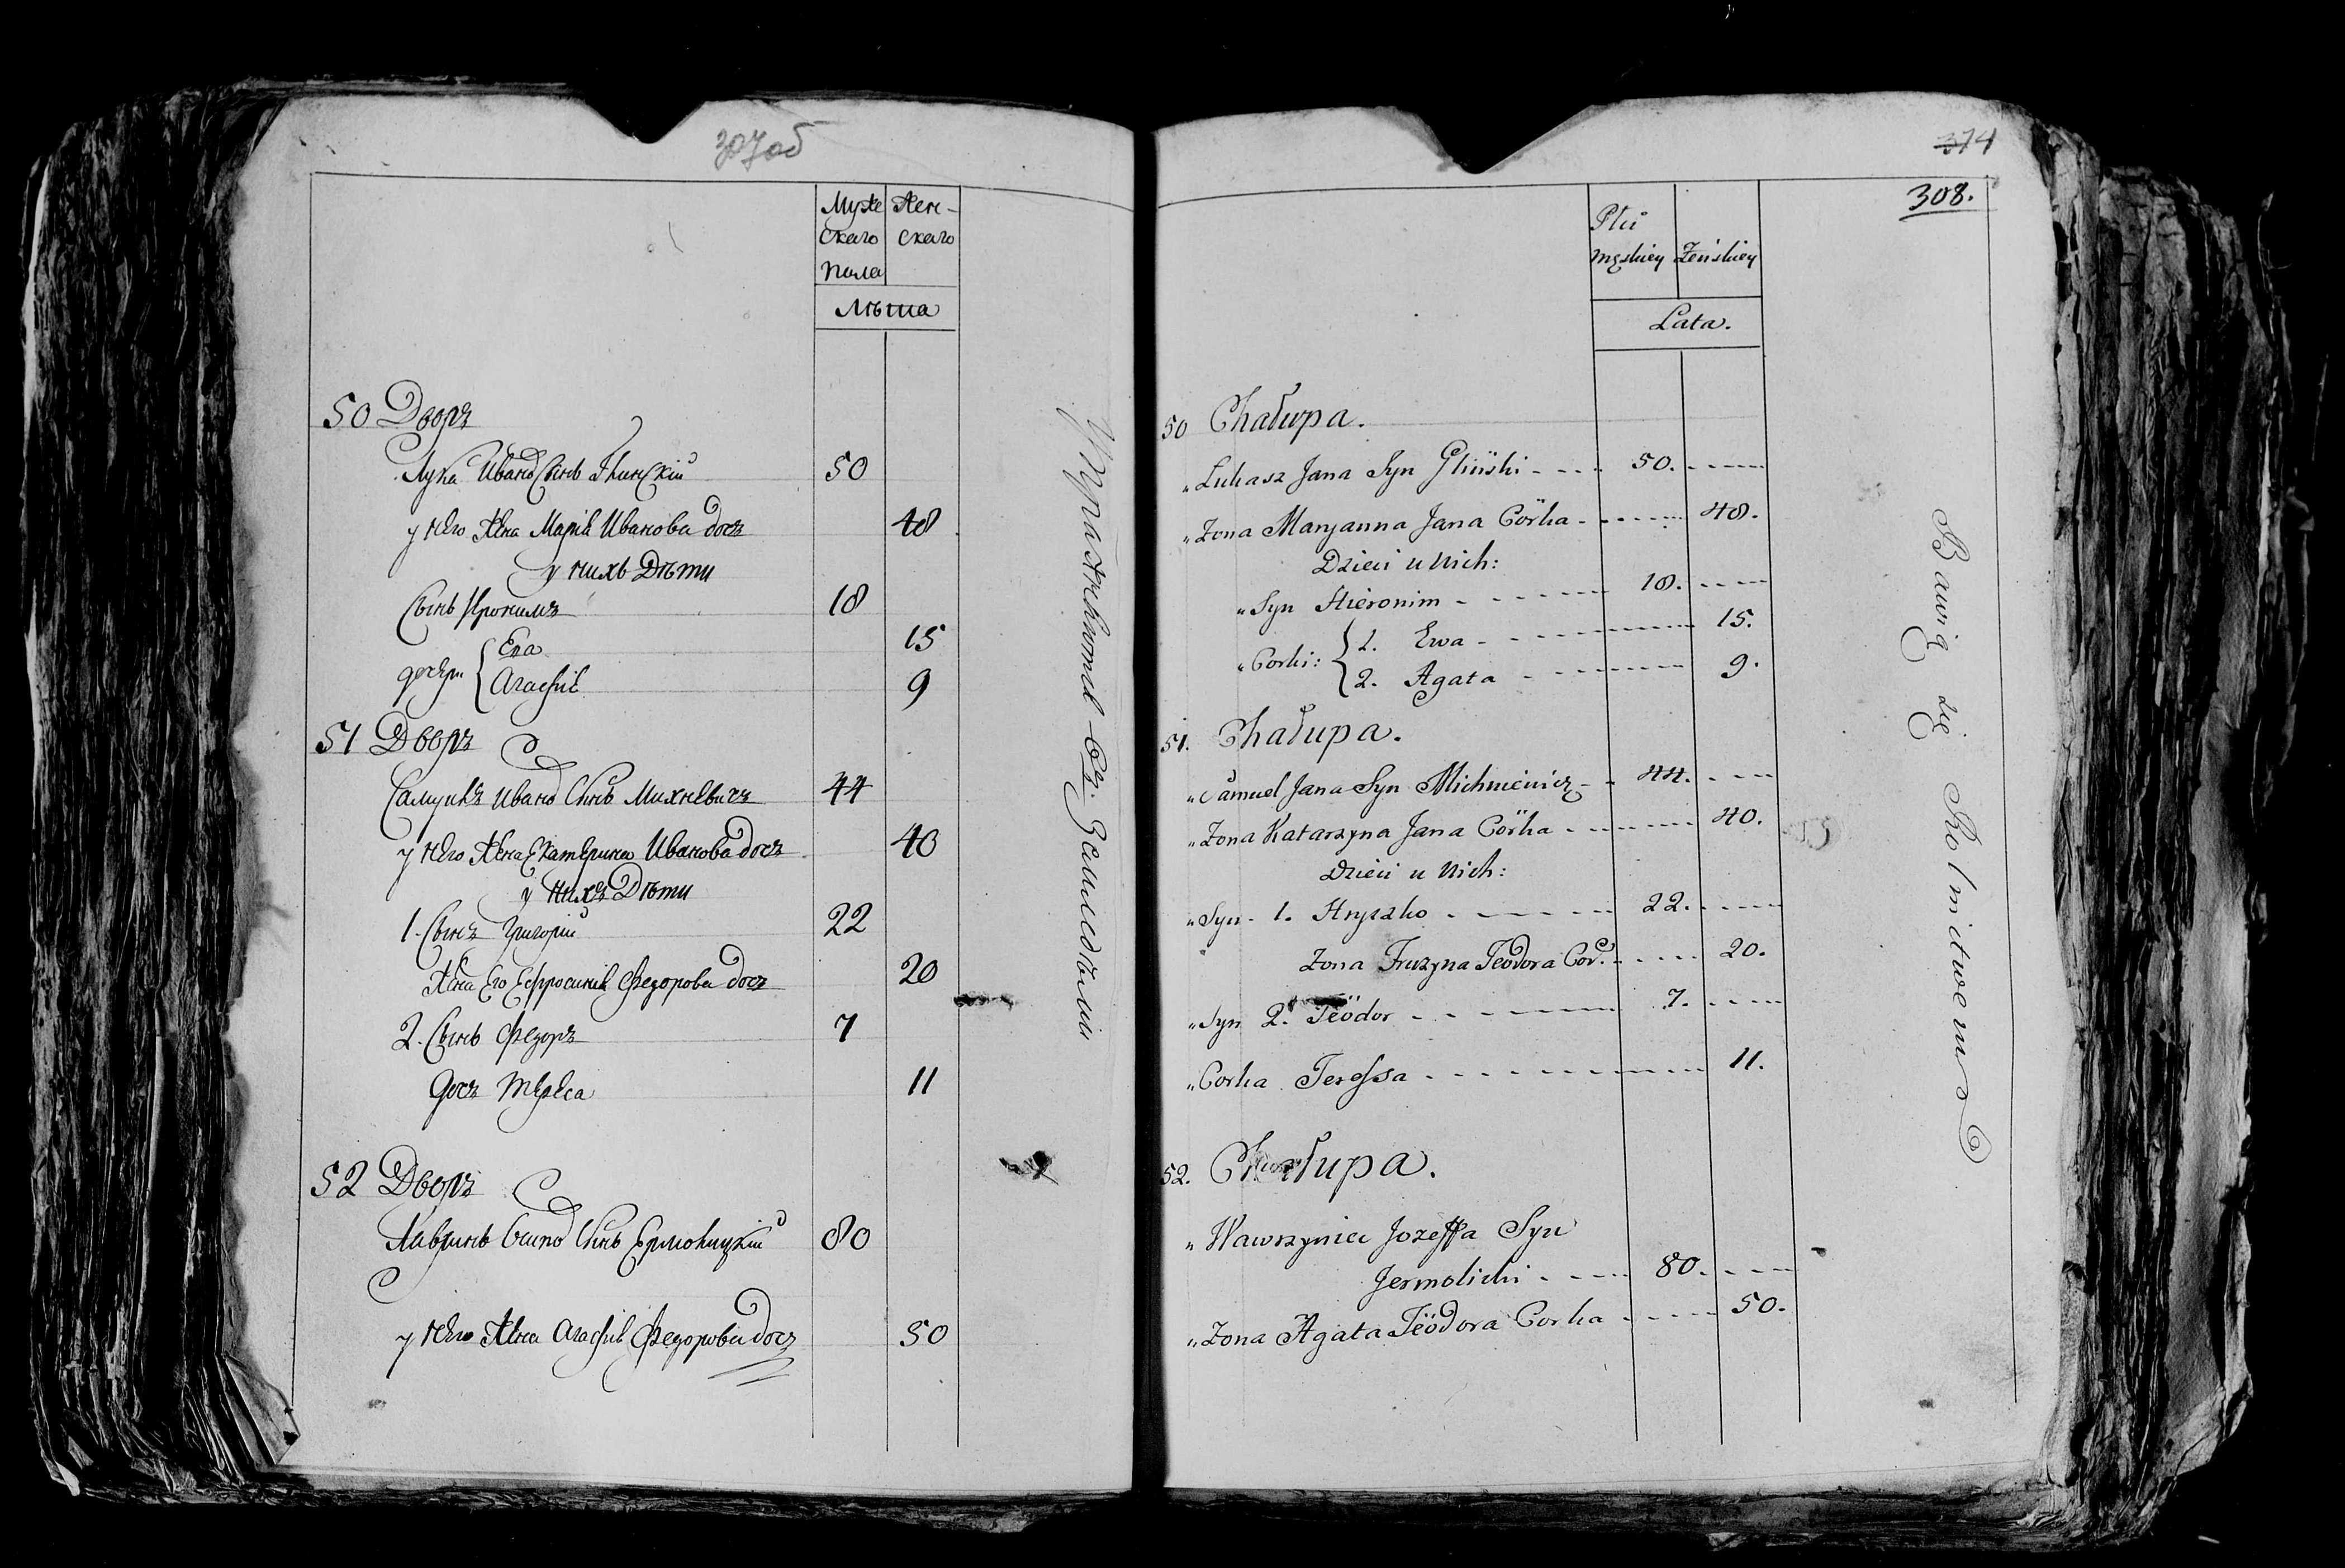 307 об
Муже Жен-
скаго скаго
пола
Лѣта
50 Дворъ
Лука Ивановъ Сынъ Глинскій 50
у него Жена Марія Иванова дочь 48
у нихъ Дѣти
Сынъ Иронимъ 18
дочери { Ева 15
Агафія 9
51 Дворъ
Самуилъ Иванов Сынъ Михневичъ 44
у него Жена Екатерина Иванова дочь 40
у нихъ Дѣти
1. Сынъ Григорій 22
Жена его Ефросинія Федорова дочь 20
2. Сынъ Федоръ 7
дочь Тереса 11
52 Дворъ
Лавринъ Осипов Сынъ Ермолицкій 80
у него Жена Агафія Федорова дочь 50
Упражняютсѧ въ Земледѣліи
374
308.
Płci
męskiey Żeńskiey
Lata.
50 Chałupa.
„ Łukasz Jana Syn Gliński - - - 50. - - - -
„ Żona Maryanna Jana Córka - - - - - 48.
Dzieci u Nich:
„ Syn Hieronim - - - - - 18. - - - -
„ Corki: { 1. Ewa - - - - - - 15.
2. Agata - - - - - 9.
51. Chałupa.
„ Samuel Jana Syn Michniewicz - - 44. - - -
„ Żona Katarzyna Jana Córka - - - - - 40.
Dzieci u Nich:
„ Syn - 1. Hryszko - - - - - 22. - - - -
Żona Fruzyna Teodora Cor. - - - - 20.
„ Syn 2. Teodor - - - - - 7. - - - -
„ Corka Teressa - - - - - - - 11.
52. Chałupa.
„ Wawrzyniec Jozeffa Syn
Jermolicki - - - - 80. - - - -
„ Żona Agata Teodora Corka - - - - 50.
Bawią się Rolnictwem